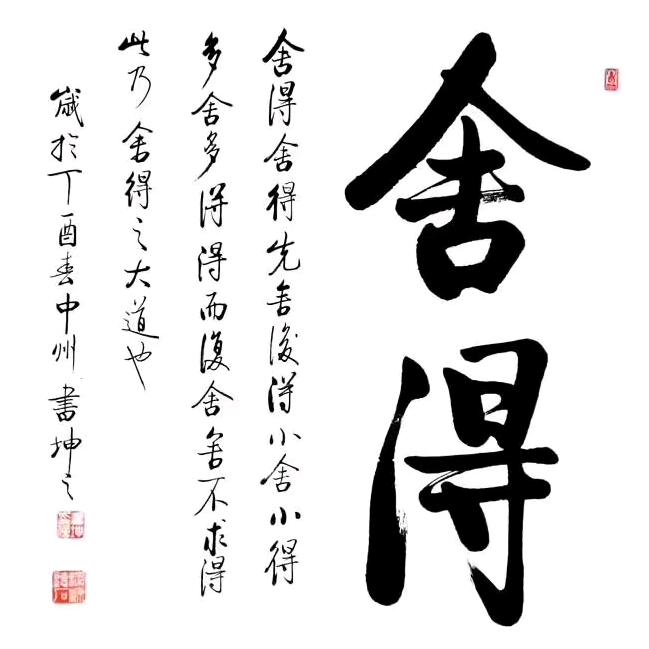 舍得
舍得舍得先舍後得小舍小得
多舍多得得而復舍舍不求得
此乃舍得之大道也
歲於丁酉春中州書坤之